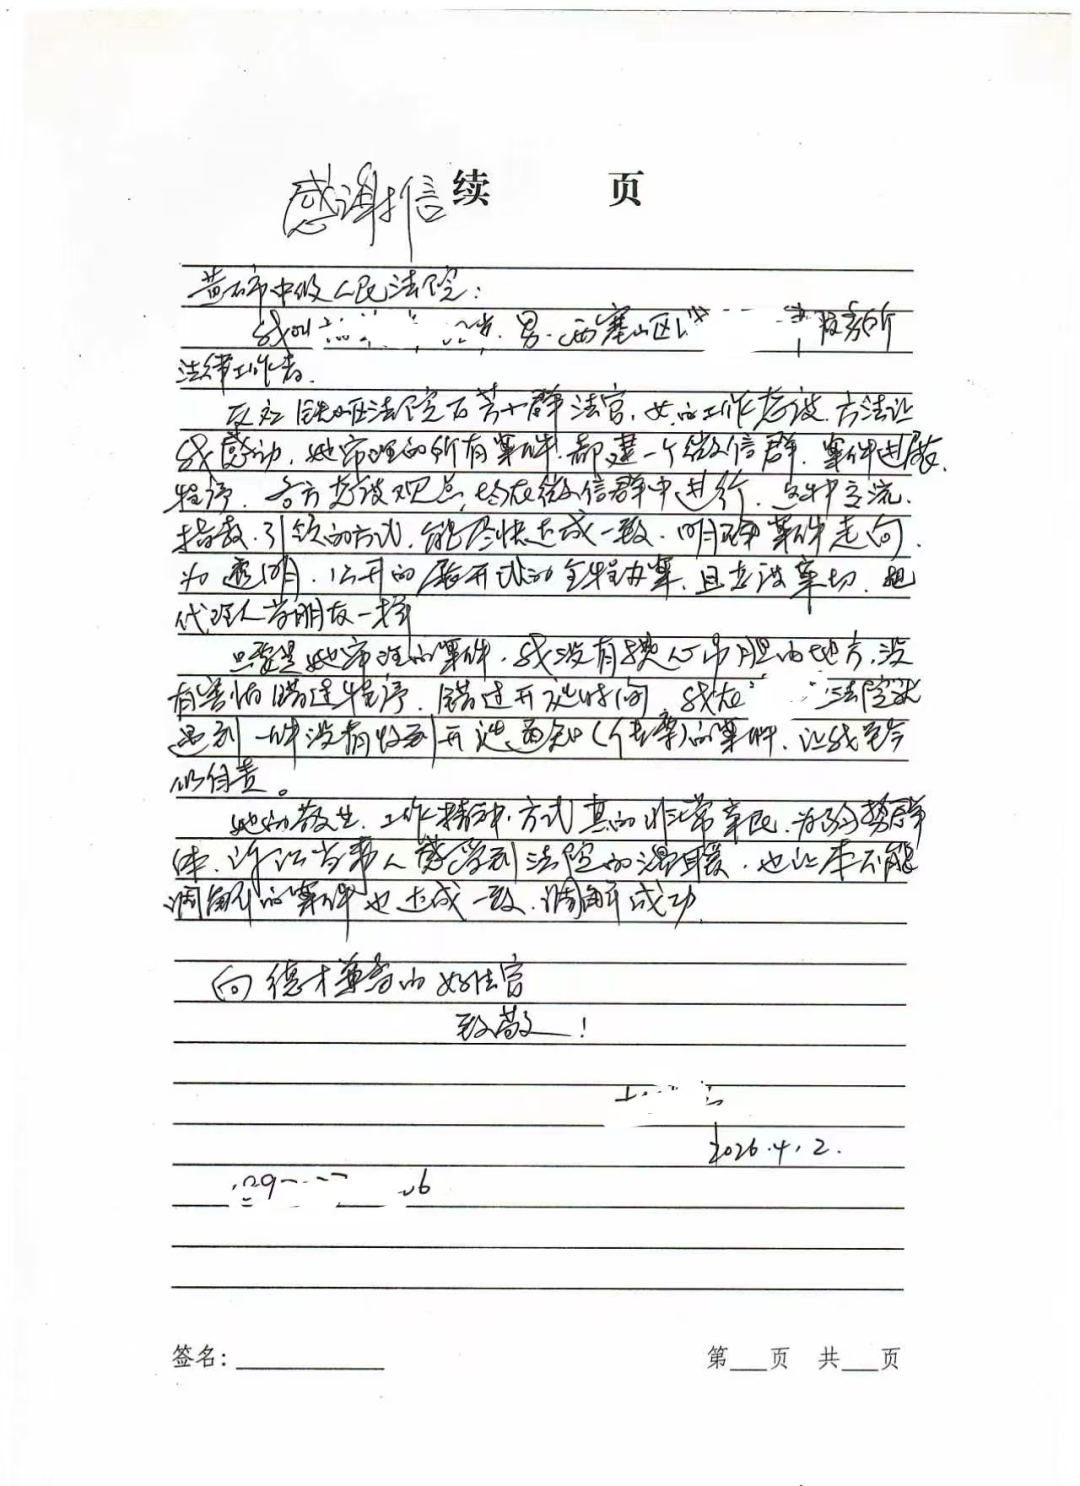 感谢信 续 页
黄石市中级人民法院:
我叫 男.西塞山区 服务所
法律工作者.
法院 法官,她的工作态度.方法让
我感动,她审理的所有案件.都建一个微信群.案件进展.
程序.各方态度观点,均在微信群中进行.这种交流.
指教.引领的方式,能尽快达成一致.明确案件走向.
为透明.公开的展开式的全程办案.且态度亲切.把
代理人当朋友一样
只要是她审理的案件.我没有提心吊胆的地方,没
有害怕错过程序.错过开庭时间.我在 法院就
遇到一件没有收到开庭通知(传票)的案件.让我至今
仍自责。
她的敬业.工作精神.方式真的非常亲民.为弱势群
体.让当事人感受到法院的温暖.也让本不能
调解的案件也达成一致.调解成功.
向德才兼备的好法官
致敬!
2026.4.2.
签名:
第 页 共 页